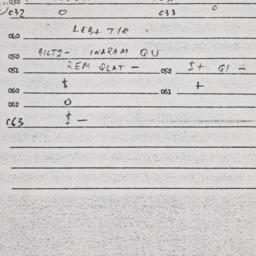 030
032 0 033 0
040 LEB+ TIR
050 BILTZ- INARAM QU
051 REM QLAT - 052 I+ GI -
060 $ 061 +
062 0
063 $ -